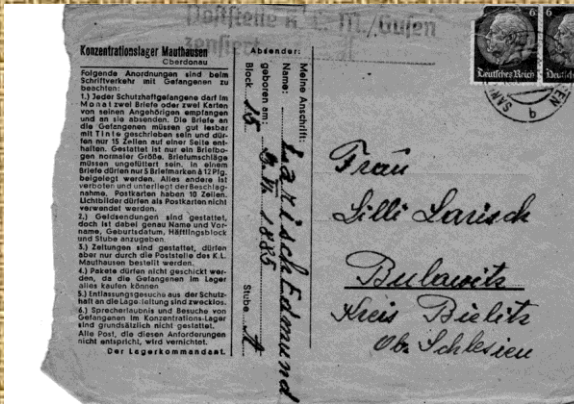 Poststelle K. L. M./Gusen
zensiert
Konzentrationslager Mauthausen
Oberdonau
Folgende Anordnungen sind beim
Schriftverkehr mit Gefangenen zu
beachten:
1.) Jeder Schutzhaftgefangene darf im
Monat zwei Briefe oder zwei Karten
von seinen Angehörigen empfangen
und an sie absenden. Die Briefe an
die Gefangenen müssen gut lesbar
mit Tinte geschrieben sein und dür-
fen nur 15 Zeilen auf einer Seite ent-
halten. Gestattet ist nur ein Briefbo-
gen normaler Größe. Briefumschläge
müssen ungefüttert sein. In einem
Briefe dürfen nur 5 Briefmarken à 12 Pfg.
beigelegt werden. Alles andere ist
verboten und unterliegt der Beschlag-
nahme. Postkarten haben 10 Zeilen.
Lichtbilder dürfen als Postkarten nicht
verwendet werden.
2.) Geldsendungen sind gestattet,
doch ist dabei genau Name und Vor-
name, Geburtsdatum, Häftlingsblock
und Stube anzugeben.
3.) Zeitungen sind gestattet, dürfen
aber nur durch die Poststelle des K.L.
Mauthausen bestellt werden.
4.) Pakete dürfen nicht geschickt wer-
den, da die Gefangenen im Lager
alles kaufen können
5.) Entlassungsgesuche aus der Schutz-
haft an die Lagerleitung sind zwecklos.
6.) Sprecherlaubnis und Besuche von
Gefangenen im Konzentrations-Lager
sind grundsätzlich nicht gestattet.
Alle Post, die diesen Anforderungen
nicht entspricht, wird vernichtet.
Der Lagerkommandant.
Absender:
Meine Anschrift:
Name: Larisch Edmund
geboren am: 9. VI. 1885
Block 15 Stube A
Frau
Lilli Larisch
Bulowitz
Kreis Bielitz
Ob. Schlesien
6 6
Deutsches Reich Deutsches Reich
b